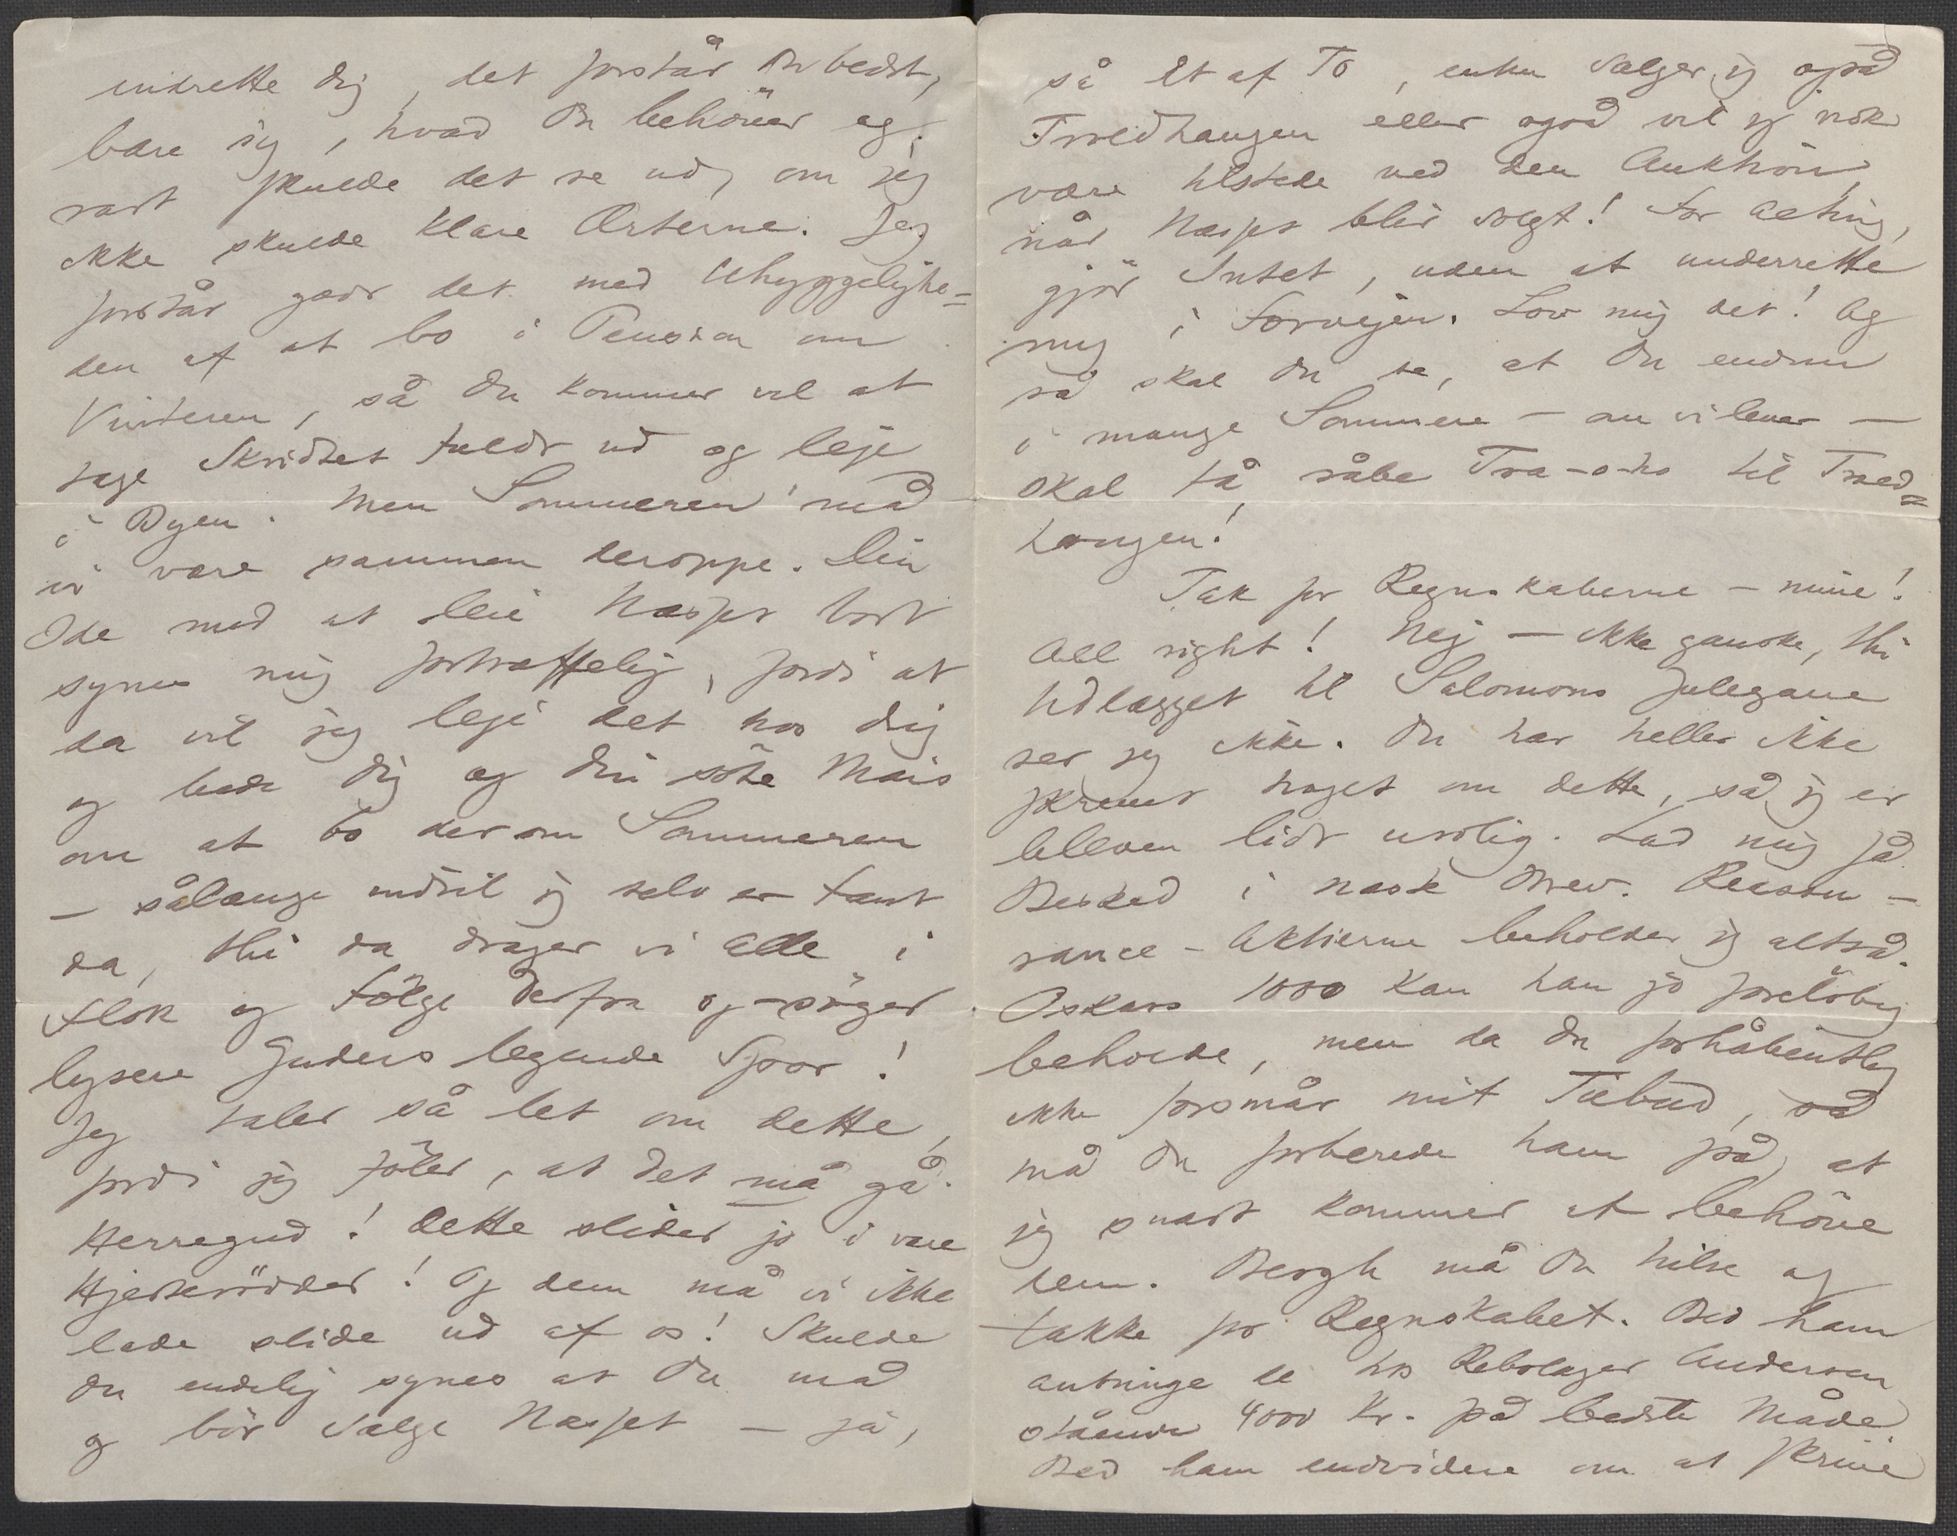 indrette dig, det forstår Du bedst,
bare sig, hvad Du behöver og
rart skulde det se ud, om jeg
ikke skulde klare Ærterne. Jeg
forstår godt det med Uhyggelighe=
den af at bo i Pension om
Vinteren, så Du kommer vel at
tage Skridtet fuldt ud og leje
i Byen. Men Sommeren må
vi være sammen deroppe. Din
Ide med at leie Næsset bort
synes mig fortræffelig, fordi at
da vil jeg leje det hos dig
og bede dig og din söte Mais
om at bo der om Sommeren
– sålænge indtil jeg selv er færdig
da, thi da drager vi alle i
Flok og Fölge derfra og söger
lysere Guders legende Spor!
Jeg taler så let om dette,
fordi jeg föler, at det må gå.
Herregud! dette slider jo i vore
Hjerterödder! Og dem må vi ikke
lade slide ud af os! Skulde
Du endelig synes at Du må
og bör sælge Næsset – ja,
så Et af To, enten sælger jeg også
Troldhaugen eller også vil jeg nok
være tilstede ved den Auktion,
når Næsset blir solgt! For alting,
gjör Intet, uden at underrette
mig i Forvejen. Lov mig det! Og
så skal Du se, at Du endnu
i mange Sommere – om vi lever –
skal få råbe Tra-o-ho til Trold=
haugen!
Tak for Regnskaberne – mine!
All right! Nej – ikke ganske, thi
Udlægget til Salomons Julegave
ser jeg ikke. Du har heller ikke
skrevet noget om dette, så jeg er
bleven lidt urolig. Lad mig få
Besked i næste Brev. Reassu-
rance-Aktierne beholder jeg altså.
Oskars 1000 kan han jo forelöbig
beholde, men da Du forhåbentlig
ikke forsmår mit Tilbud, så
må Du forberede ham på, at
jeg snart kommer at behöve
dem. Bergh må Du hilse og
takke for Regnskabet. Bed ham
anbringe de hos Rebslager Andersen
stående 4000 Kr. på bedste Måde.
Bed ham endvidere om at skrive